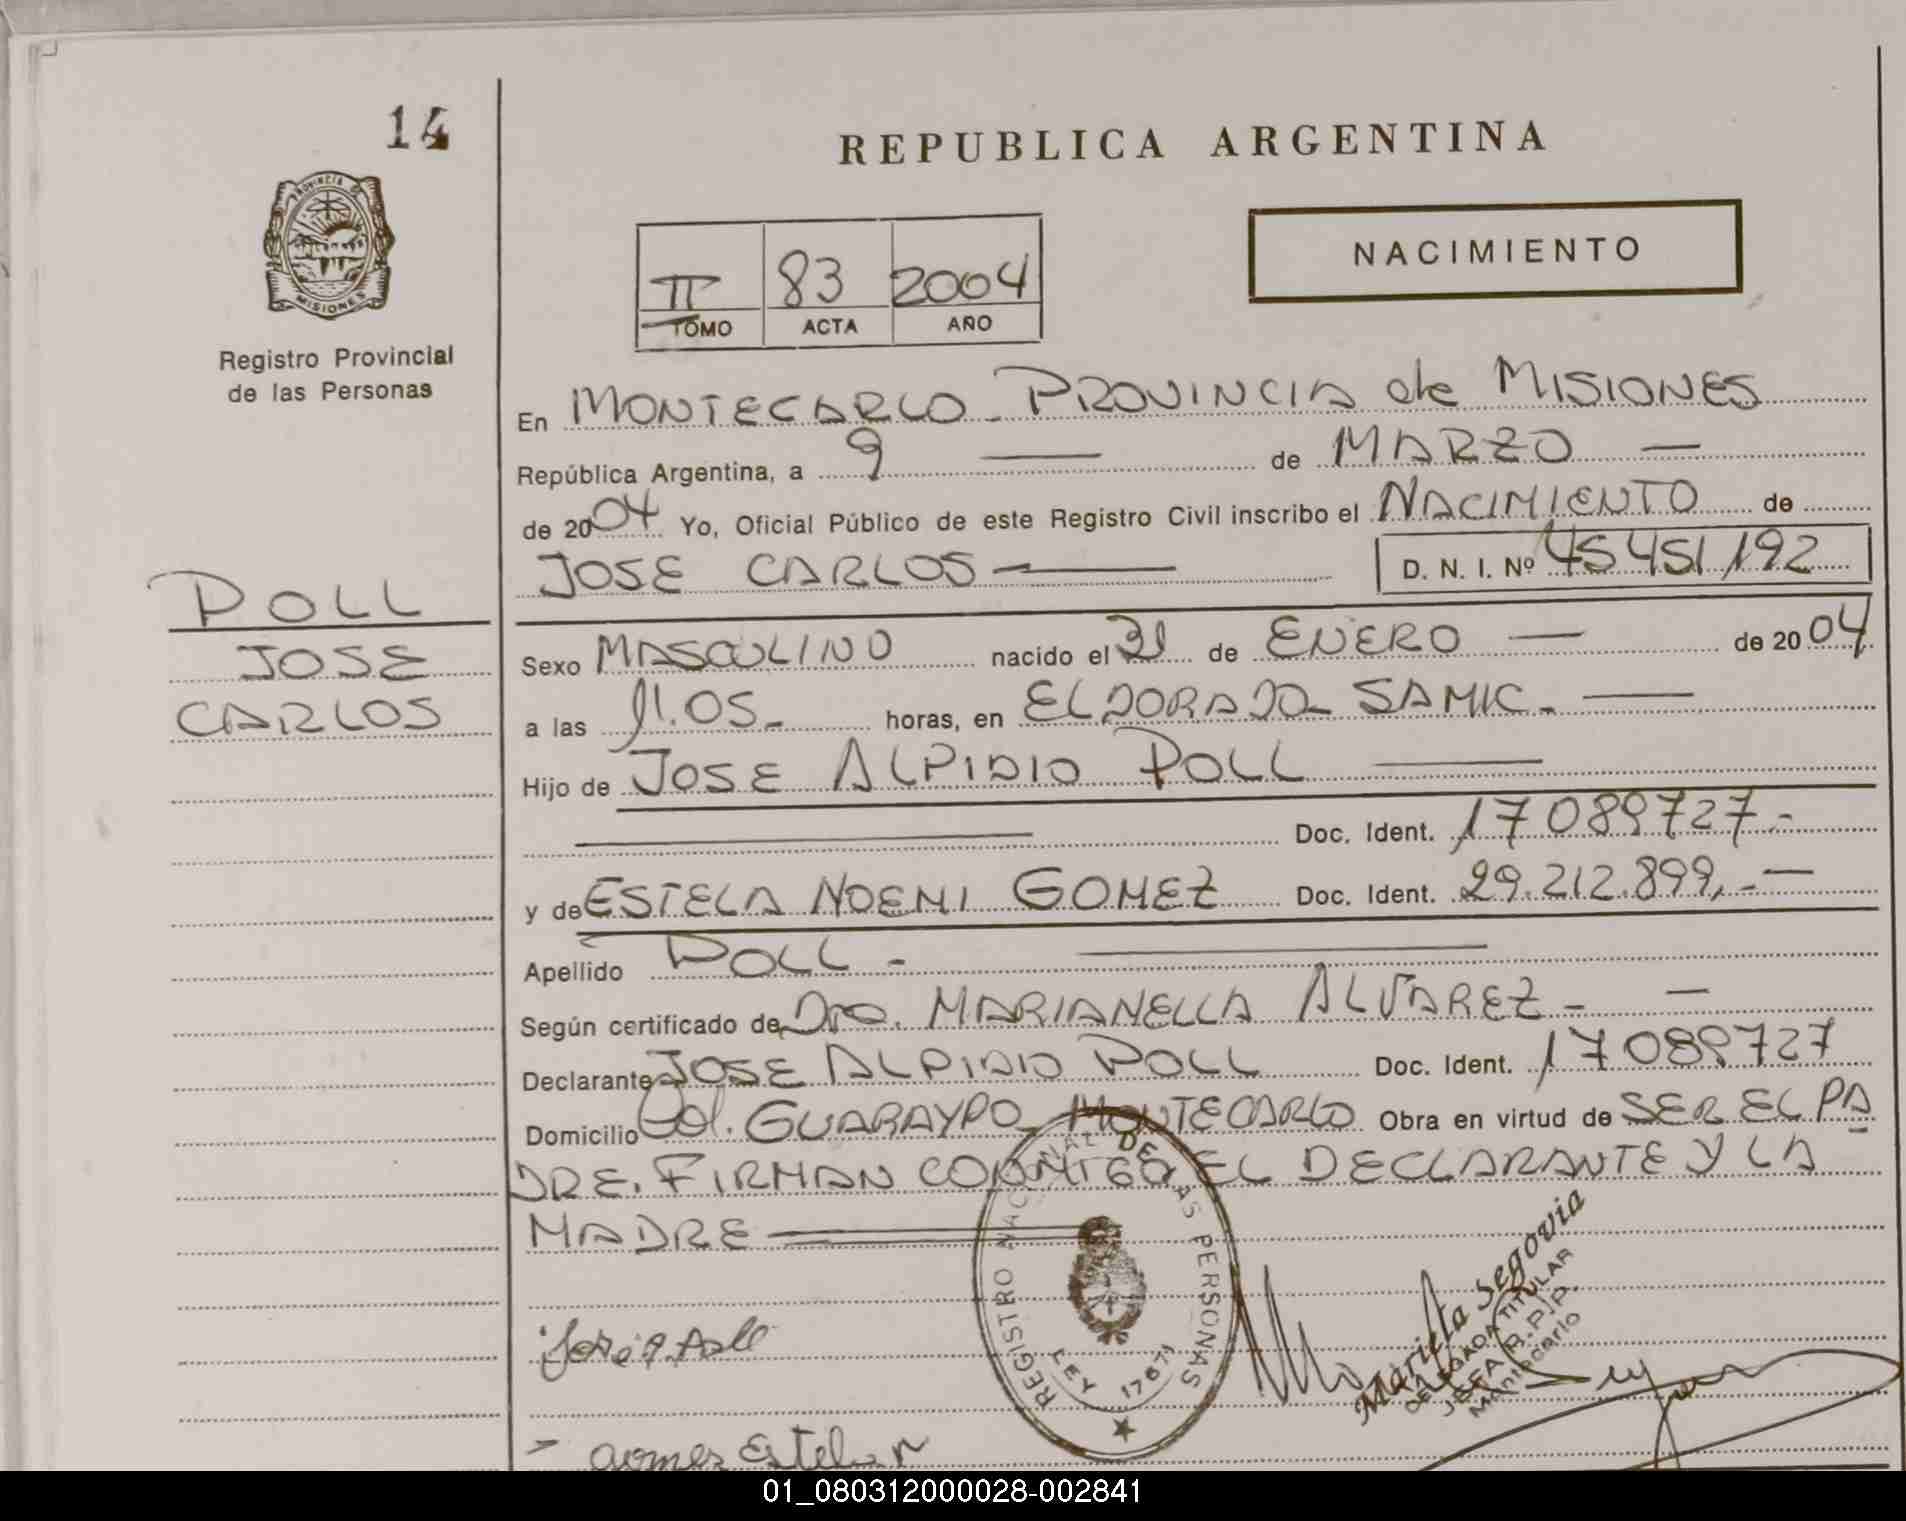 14
PROVINCIA DE
MISIONES
Registro Provincial
de las Personas
REPUBLICA ARGENTINA
NACIMIENTO
II 83 2004
TOMO ACTA AÑO
En MONTECARLO - PROVINCIA de MISIONES
República Argentina, a 9 — de MARZO —
de 2004 Yo, Oficial Público de este Registro Civil inscribo el NACIMIENTO de
JOSE CARLOS — D. N. I. Nº 45451192
POLL
JOSE
CARLOS
Sexo MASCULINO nacido el 31 de ENERO — de 2004
a las 11.05 - horas, en ELDORADO - SAMIC. —
Hijo de JOSE ALPIDIO POLL —
— Doc. Ident. 17089727.-
y de ESTELA NOEMI GOMEZ Doc. Ident. 29.212.899,.-—
Apellido POLL - —
Según certificado de Dra. MARIANELLA ALVAREZ - —
Declarante JOSE ALPIDIO POLL Doc. Ident. 17089727
Domicilio Col. GUARAYPO MONTECARLO Obra en virtud de SER EL PA
DRE. FIRMAN CONMIGO EL DECLARANTE Y LA
MADRE
REGISTRO NACIONAL DE LAS PERSONAS
LEY 17671
Marieta Segovia
DELEGADA TITULAR
JEFA R.P.P.
Montecarlo
José A. Poll
Gomez Estela N
01_080312000028-002841